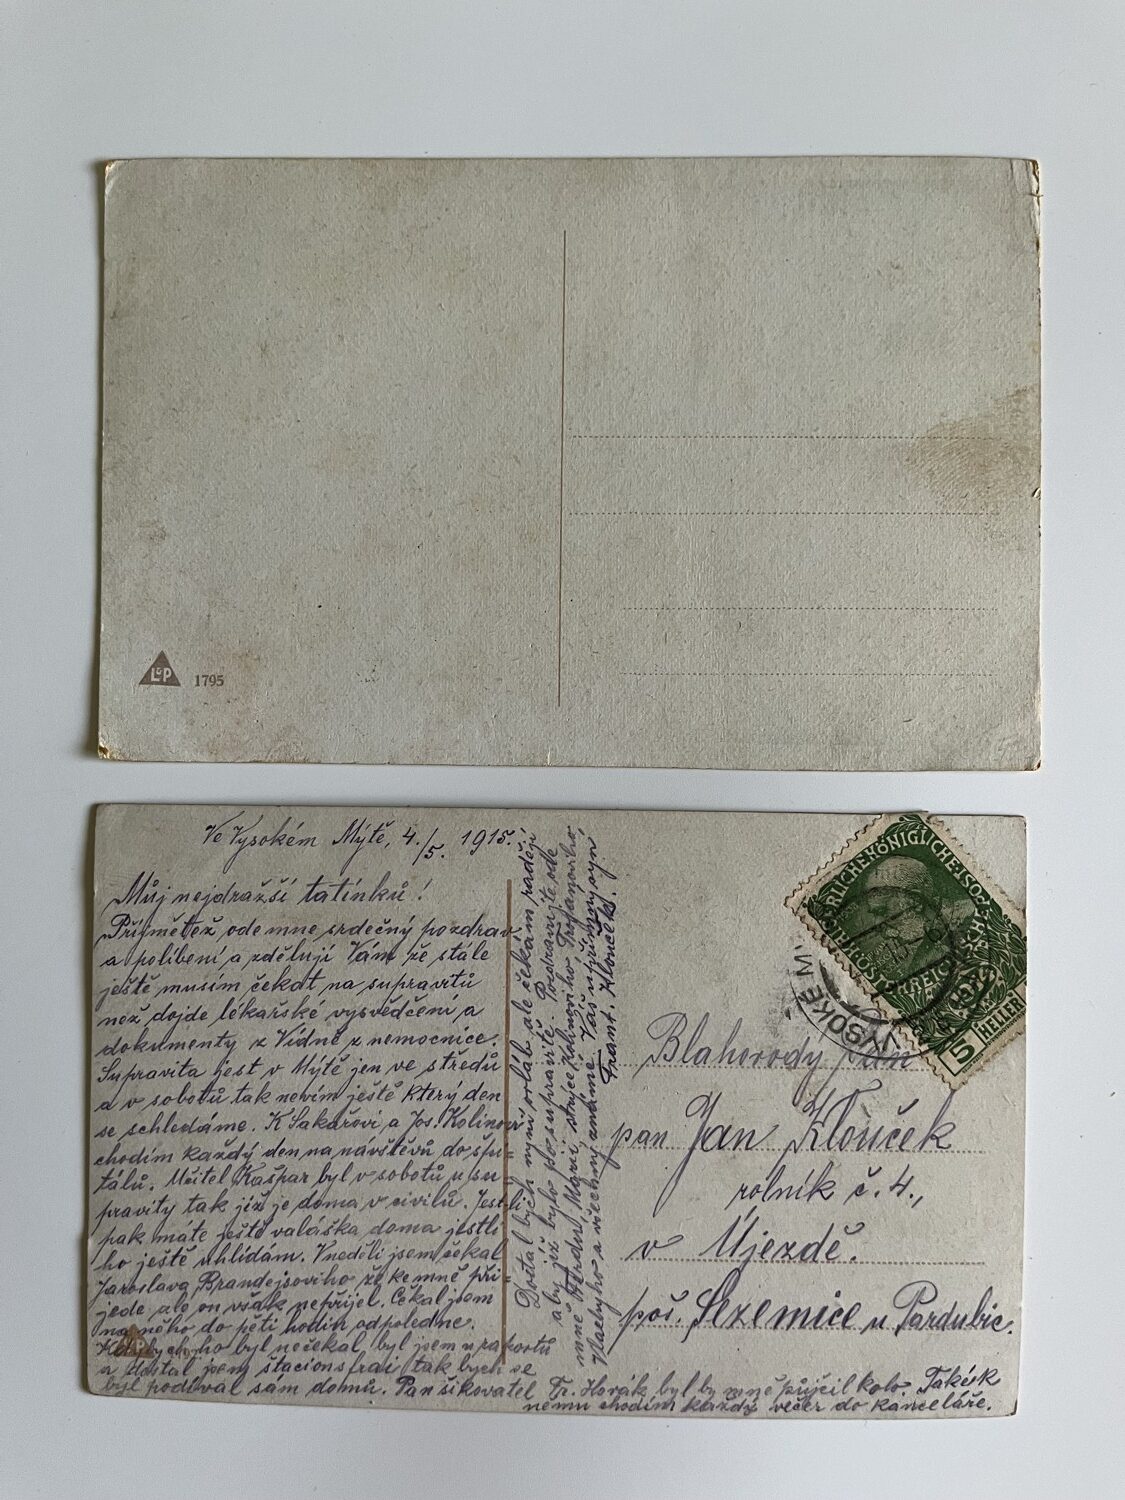 L&P 1795
Ve Vysokém Mýtě, 4./5. 1915.
Můj nejdražší tatínku!
Přijmětež odemne srdečný pozdrav
a políbení a zděluji Vám že stále
ještě musím čekat na supravitů
než dojde lékařské vysvědčení a
dokumenty z Vídně z nemocnice.
Supravita jest v Mýtě jen ve středu
a v sobotu tak nevím ještě který den
se schledáme. K Sakařovi a Jos. Kolinovi
chodím každý den na návštěvu do špi=
tálů. Učitel Kašpar byl v sobotu u su
pravity tak již je doma v civilů. Jest-li
pak máte ještě valáška doma jestli
ho ještě uhlídám. V neděli jsem čekal
Jaroslava Brandejsoviho že ke mně při=
jede ale on však nepřijel. Čekal jsem
na něho do pěti hodin odpoledne.
Kdybych ho byl nečekal, byl jsem u raportu
a dostal jsem štacionsfrai tak bych se
byl podíval sám domů. Pan šikovatel Fr. Horák byl by mně půjčil kolo. Také k
němu chodím každý večer do kanceláře.
Dostal bych nyní urláb ale čekám raději
a by již bylo po supravitě. Pozdravujte ode
mně Marii, strýce Kolinoviho
Vlachyho a všechny známé. Váš upřímný syn
Frant. Klouček.
KAISERLICHE KÖNIGLICHE
ÖSTERREICHISCHE
5 HELLER
VYSOKÉ M
Blahorodý pán
pan Jan Klouček
rolník č. 4.,
v Újezdě.
poš. Sezemice u Pardubic.